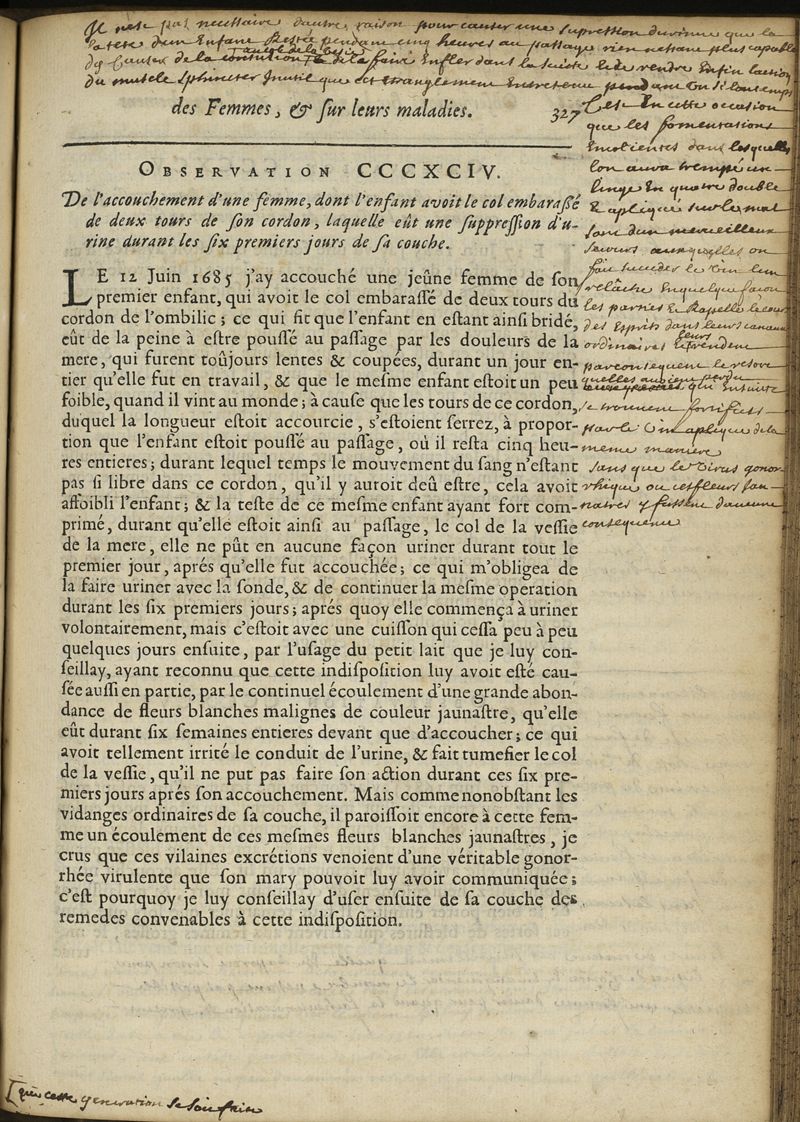 Il nest pas necessaire dautre raison pour causer une supression durinne que la
tete dun Enfant Restée pendant cinq heures au passage rien nettant plus capable
de Causer de la contution
de la faire Enfler dans la suiste & de rendre Enfin laction
du muscle sphincter Inutil que cet etranglement Entretenu pendant un si lontemps
des Femmes, & ſur leurs maladies. 327
Cest En cette occasion
que les fomentations
Emolientes dans lesquelles
lon aura trempé un
linge En quatre double
& apliqué sur le mal
sont dun merveilleux
secours ausquelles on
fait succeder le vin
relache En quelque facon
les parties & Rapelle le cours
des Esprits dans leurs canaux
ordinaires & leurs rendent
par consequent le resort
quelles avoient perdu
qui Ensuite
se trouvent fortifiees
par le vin apliqué de la
meme maniere
sans que le virus gonor-
rhique ou ces fleurs
y fussent daucune
consequence
OBSERVATION CCCXCIV.
De l'accouchement d'une femme, dont l'enfant avoit le col embaraßé
de deux tours de ſon cordon, laquelle eût une ſuppreſſion d'u-
rine durant les ſix premiers jours de ſa couche.
LE 12 Juin 1685 j'ay accouché une jeûne femme de ſon
premier enfant, qui avoit le col embaraſſé de deux tours du
cordon de l'ombilic; ce qui fit que l'enfant en eſtant ainſi bridé,
eût de la peine à eſtre pouſſé au paſſage par les douleurs de la
mere, qui furent toûjours lentes & coupées, durant un jour en-
tier qu'elle fut en travail, & que le meſme enfant eſtoit un peu
foible, quand il vint au monde; à cauſe que les tours de ce cordon,
duquel la longueur eſtoit accourcie, s'eſtoient ſerrez, à propor-
tion que l'enfant eſtoit pouſſé au paſſage, où il reſta cinq heu-
res entieres; durant lequel temps le mouvement du ſang n'eſtant
pas ſi libre dans ce cordon, qu'il y auroit deû eſtre, cela avoit
affoibli l'enfant; & la teſte de ce meſme enfant ayant fort com-
primé, durant qu'elle eſtoit ainſi au paſſage, le col de la veſſie
de la mere, elle ne pût en aucune façon uriner durant tout le
premier jour, aprés qu'elle fut accouchée; ce qui m'obligea de
la faire uriner avec la ſonde, & de continuer la meſme operation
durant les ſix premiers jours; aprés quoy elle commença à uriner
volontairement, mais c'eſtoit avec une cuiſſon qui ceſſa peu à peu
quelques jours enſuite, par l'uſage du petit lait que je luy con-
ſeillay, ayant reconnu que cette indiſpoſition luy avoit eſté cau-
ſée auſſi en partie, par le continuel écoulement d'une grande abon-
dance de fleurs blanches malignes de couleur jaunaſtre, qu'elle
eût durant ſix ſemaines entieres devant que d'accoucher; ce qui
avoit tellement irrité le conduit de l'urine, & fait tumefier le col
de la veſſie, qu'il ne put pas faire ſon action durant ces ſix pre-
miers jours aprés ſon accouchement. Mais comme nonobſtant les
vidanges ordinaires de ſa couche, il paroiſſoit encore à cette fem-
me un écoulement de ces meſmes fleurs blanches jaunaſtres, je
crus que ces vilaines excrétions venoient d'une véritable gonor-
rhée virulente que ſon mary pouvoit luy avoir communiquée;
c'eſt pourquoy je luy conſeillay d'uſer enſuite de ſa couche des
remedes convenables à cette indiſpoſition.
generation se soit faite